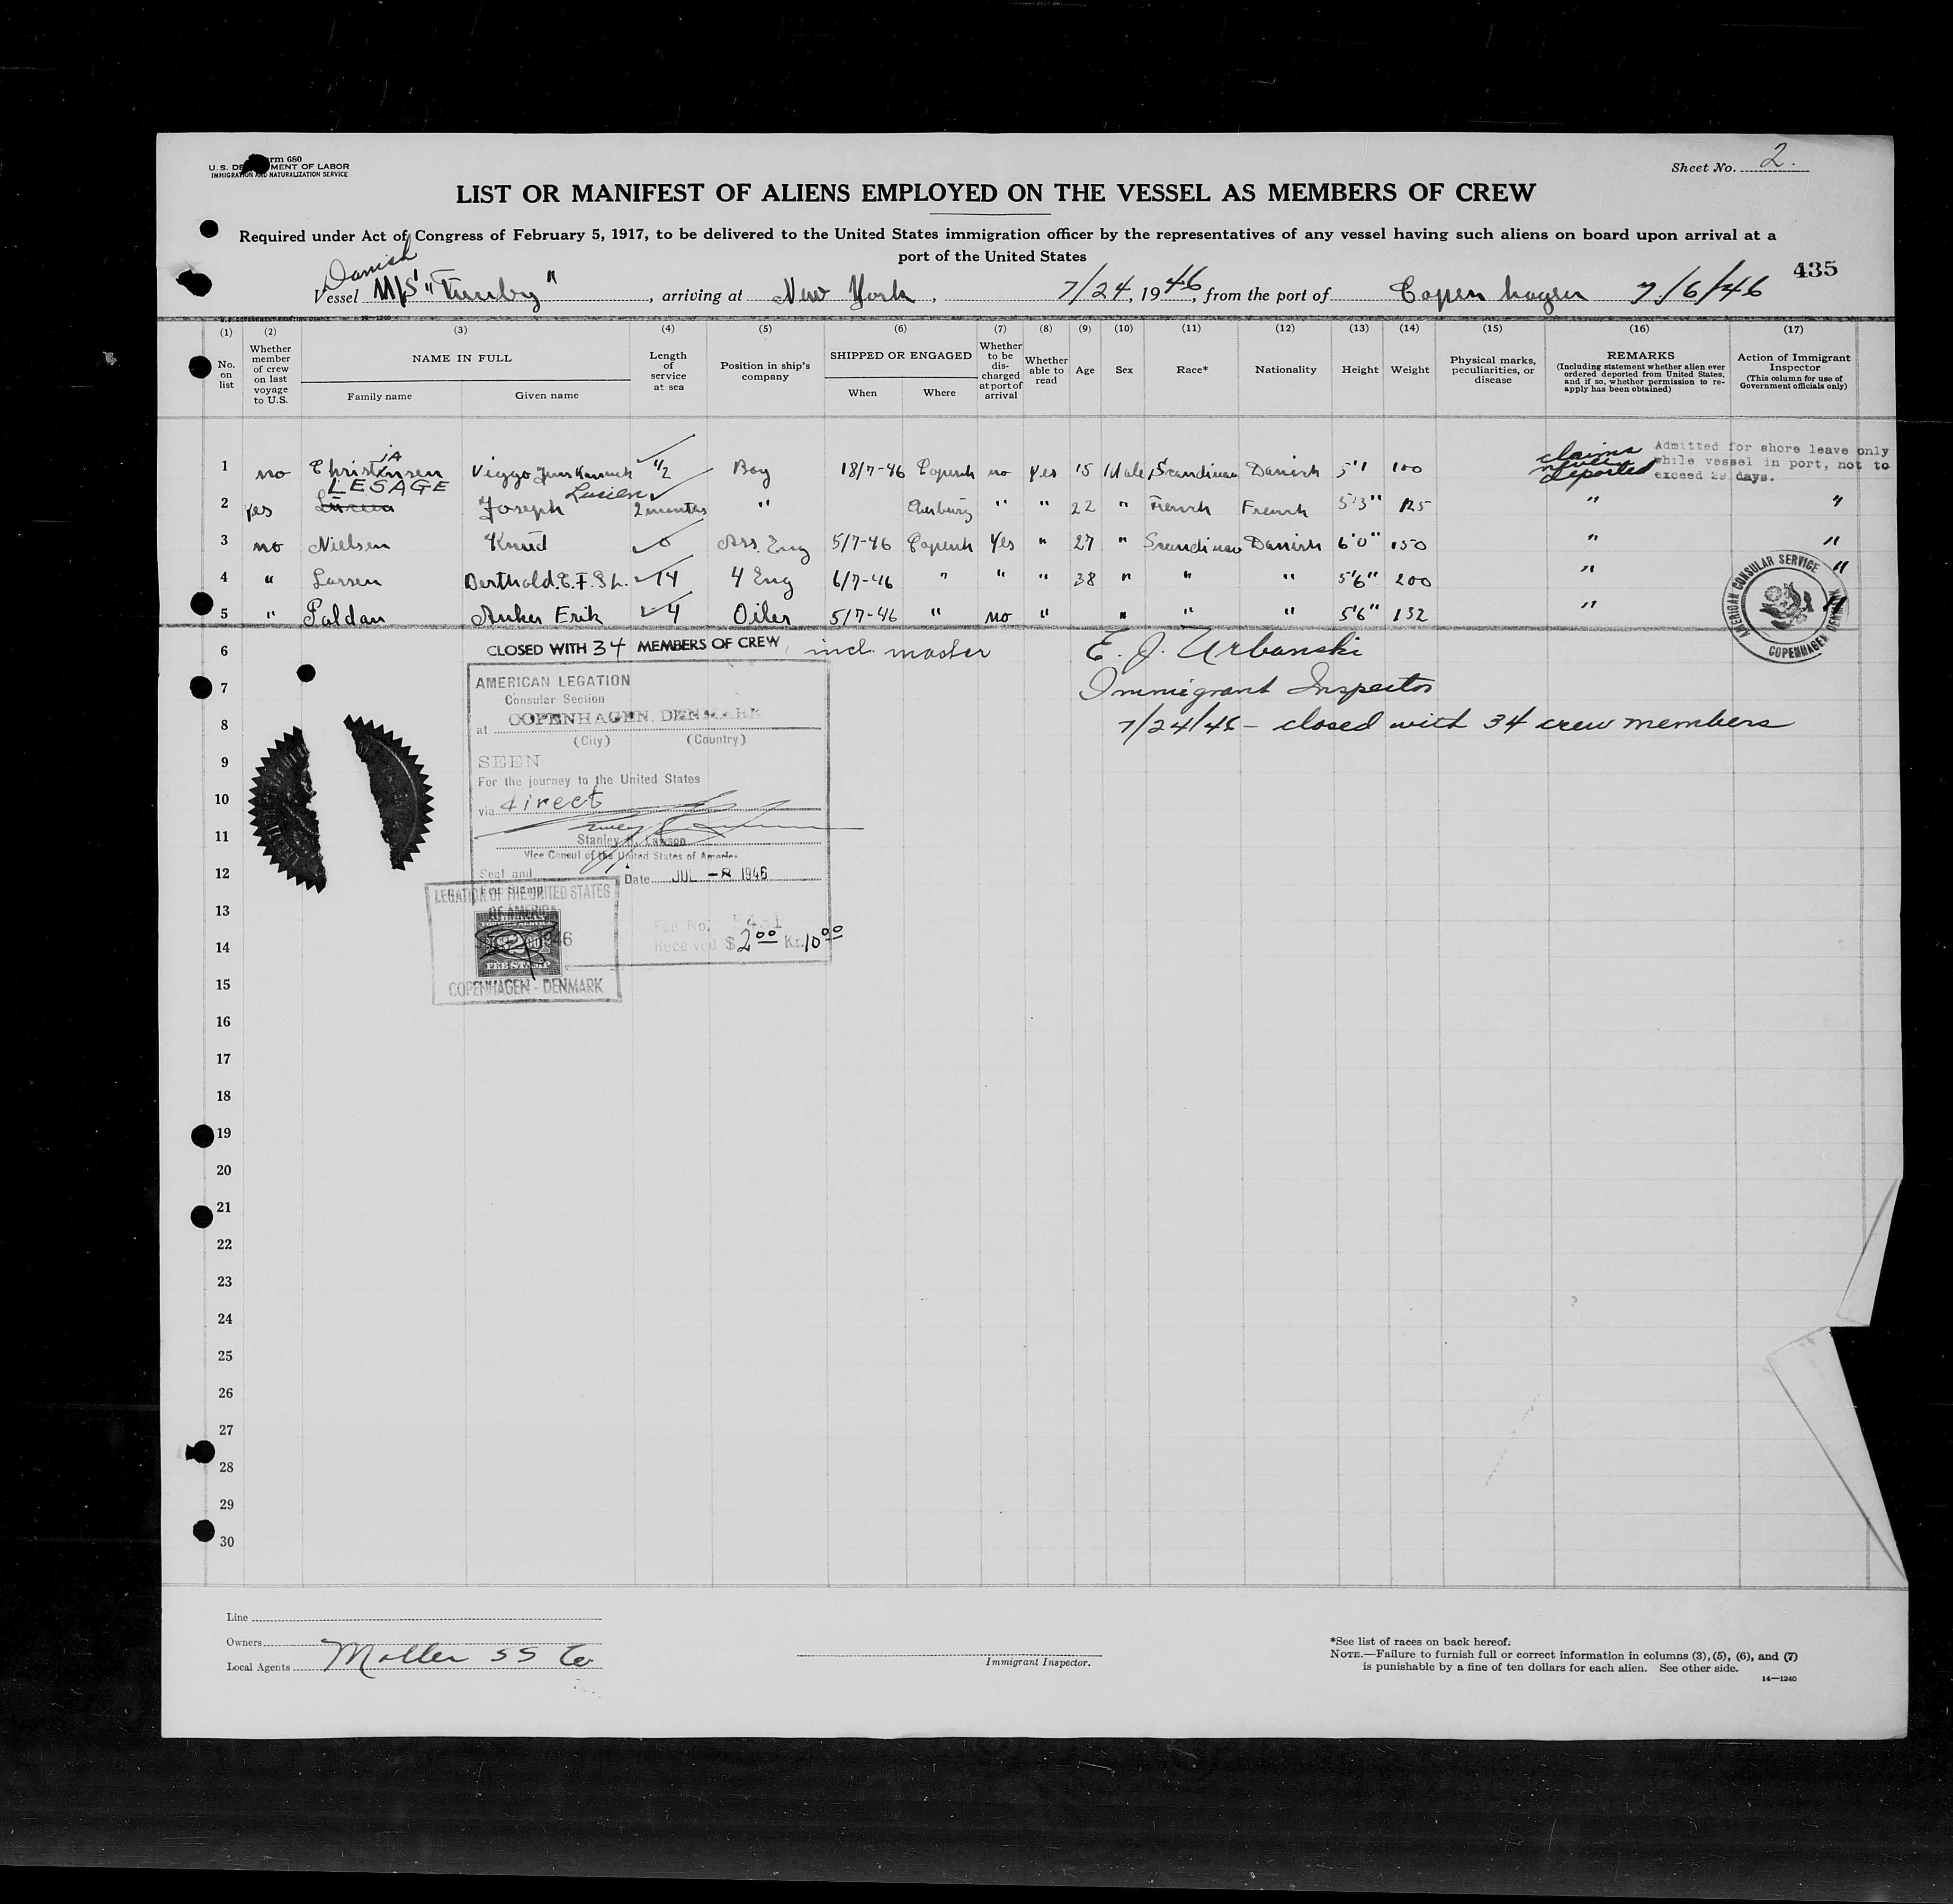 Form 680
U. S. DEPARTMENT OF LABOR
IMMIGRATION AND NATURALIZATION SERVICE
Sheet No. 2.
LIST OR MANIFEST OF ALIENS EMPLOYED ON THE VESSEL AS MEMBERS OF CREW
Required under Act of Congress of February 5, 1917, to be delivered to the United States immigration officer by the representatives of any vessel having such aliens on board upon arrival at a
port of the United States
435
Danish
Vessel M/S , arriving at New York , 7/24, 1946, from the port of Copenhagen 7/6/46
(1) (2) (3) (4) (5) (6) (7) (8) (9) (10) (11) (12) (13) (14) (15) (16) (17)
No. on list
Whether member of crew on last voyage to U.S.
NAME IN FULL
Family name
Given name
Length of service at sea
Position in ship's company
SHIPPED OR ENGAGED
When
Where
Whether to be discharged at port of arrival
Whether able to read
Age
Sex
Race*
Nationality
Height
Weight
Physical marks, peculiarities, or disease
REMARKS
(Including statement whether alien ever ordered deported from United States, and if so, whether permission to reapply has been obtained)
Action of Immigrant Inspector
(This column for use of Government officials only)
1 no Christiansen Viggo Jens 1/2 Boy 18/7-46 Copenh no yes 15 Male Scandinav Danish 5'1 100 claims never deported
Admitted for shore leave only
while vessel in port, not to
exceed 29 days.
LESAGE
2 yes Joseph Lucien 2 months " Cherbury " " 22 " French French 5'3" 125 " "
3 no Nielsen Knud 0 Ass. Eng 5/7-46 Copenh Yes " 27 " Scandinav Danish 6'0" 150 " "
4 " Larsen Berthold.E.F.S L. 14 4 Eng 6/7-46 " " " 38 " " " 5'6" 200 " "
5 " Paldan Anker Erik 4 Oiler 5/7-46 " no " " " " 5'6" 132 " "
AMERICAN CONSULAR SERVICE
COPENHAGEN DENMARK
6 CLOSED WITH 34 MEMBERS OF CREW, incl. master
E. J. Urbanski
Immigrant Inspector
7/24/46 - closed with 34 crew members
7
8
9
10
11
12
13
14
15
16
17
18
19
20
21
22
23
24
25
26
27
28
29
30
AMERICAN LEGATION
Consular Section
at COPENHAGEN, DENMARK
(City) (Country)
SEEN
For the journey to the United States
via direct
Stanley Lawson
Vice Consul of the United States of America
Seal and
Fee Stamp
Date JUL -8 1946
LEGATION OF THE UNITED STATES
OF AMERICA
FEE STAMP
COPENHAGEN - DENMARK
Fee No.
Received $ 2 00 Kr. 10 00
Line
Owners
Local Agents Moller SS Co
Immigrant Inspector.
*See list of races on back hereof.
NOTE.—Failure to furnish full or correct information in columns (3), (5), (6), and (7)
is punishable by a fine of ten dollars for each alien. See other side.
14—1240